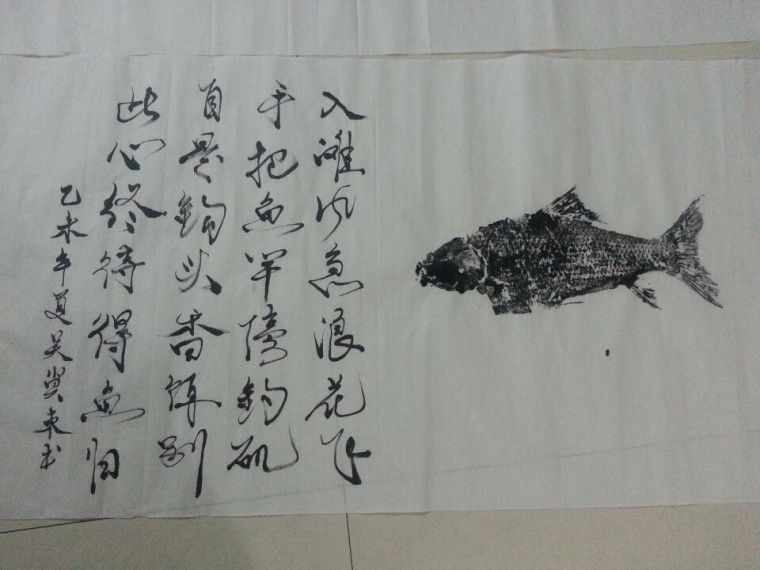 入滩风急浪花飞
手把鱼竿傍钓矶
自是钩头香饵别
此心终待得鱼归
乙未年夏吴东书